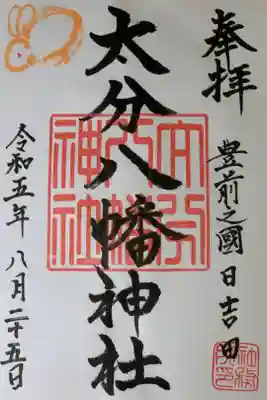 奉拝
豊前之國 日吉田
大分八幡神社
大分八幡神社
令和五年 八月二十五日